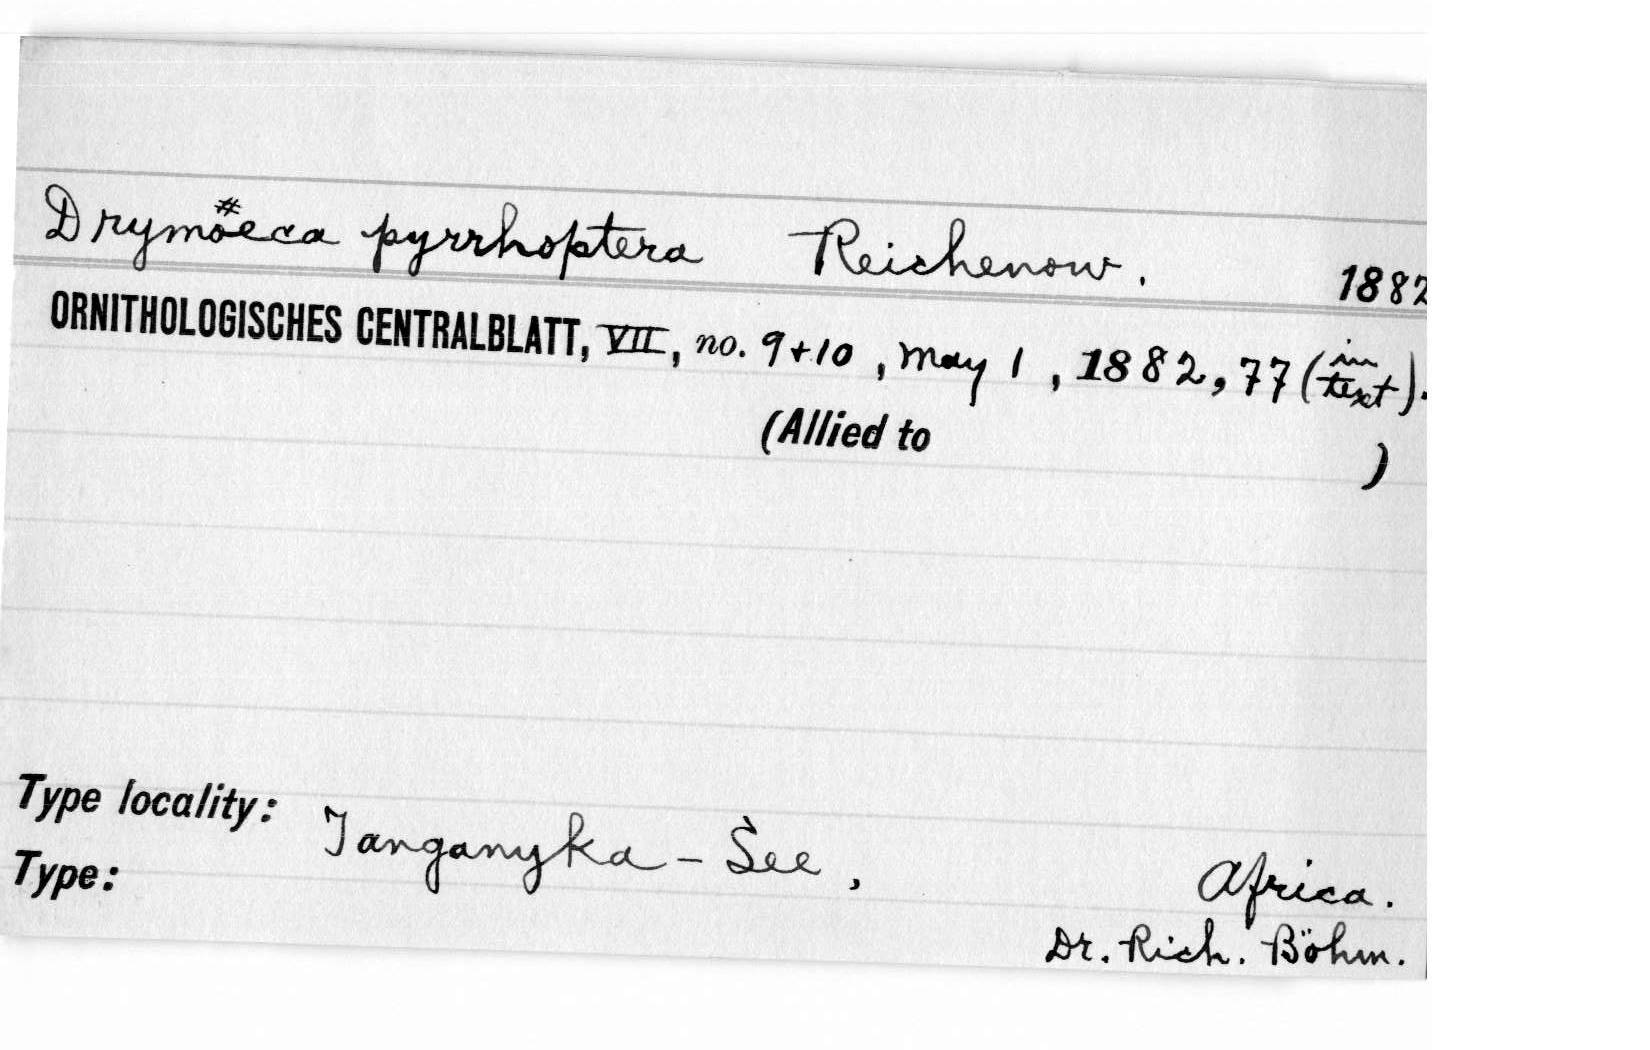 Drymöeca pyrrhoptera Reichenow. 1882
ORNITHOLOGISCHES CENTRALBLATT, VII, no. 9+10, May 1, 1882, 77 (in text).
(Allied to )
Type locality: Tanganyka-See, Africa.
Type: Dr. Rich. Böhm.